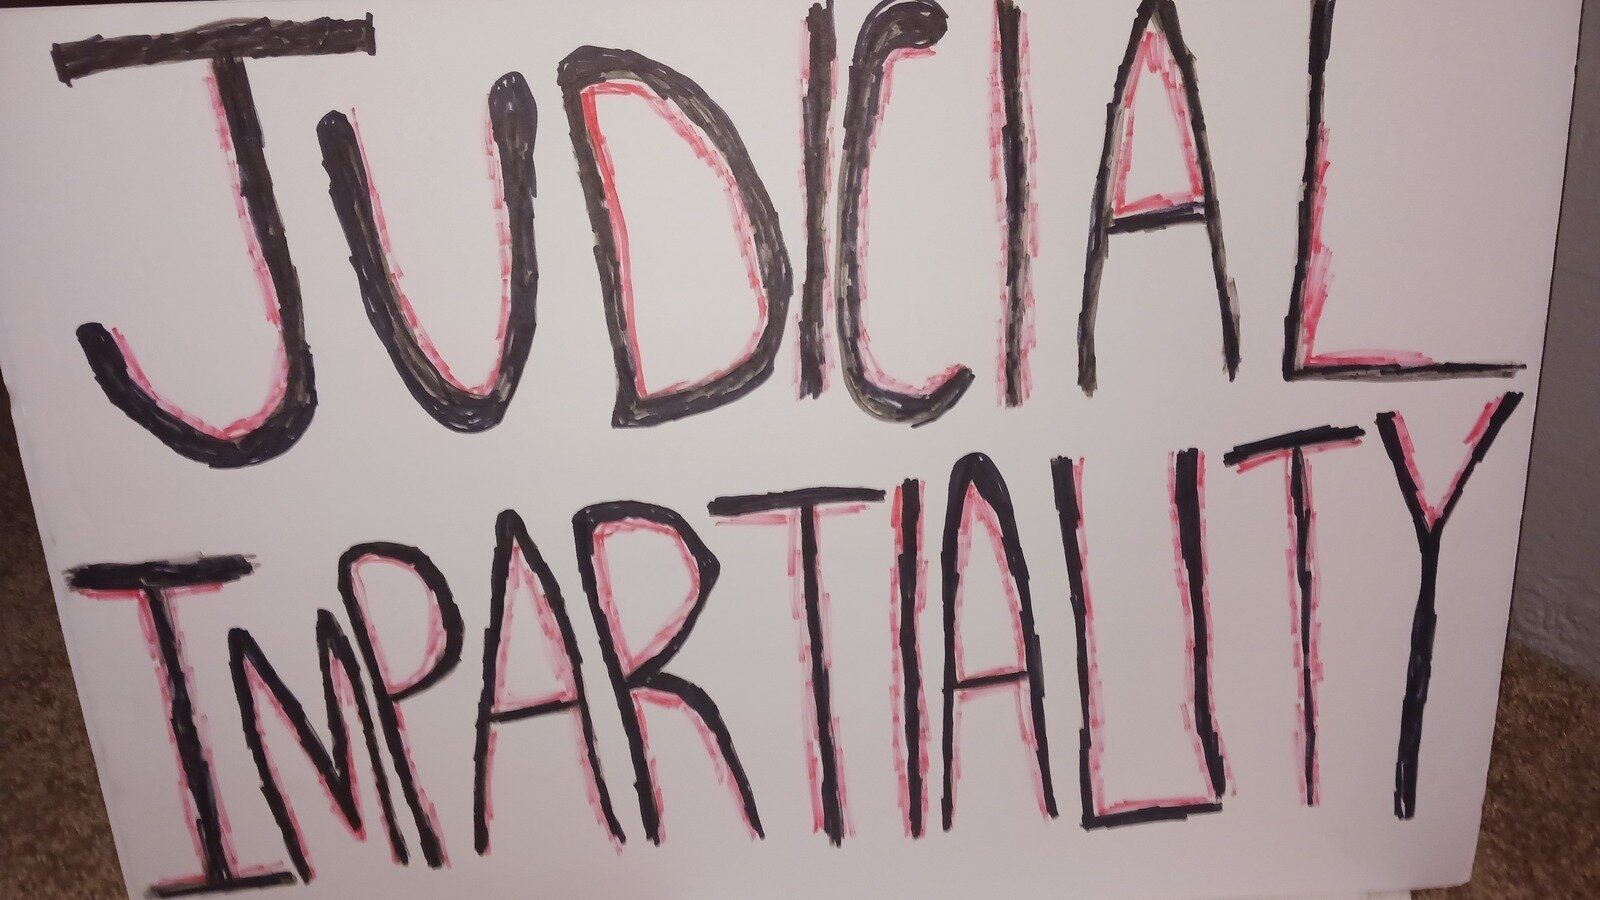 JUDICIAL
IMPARTIALITY